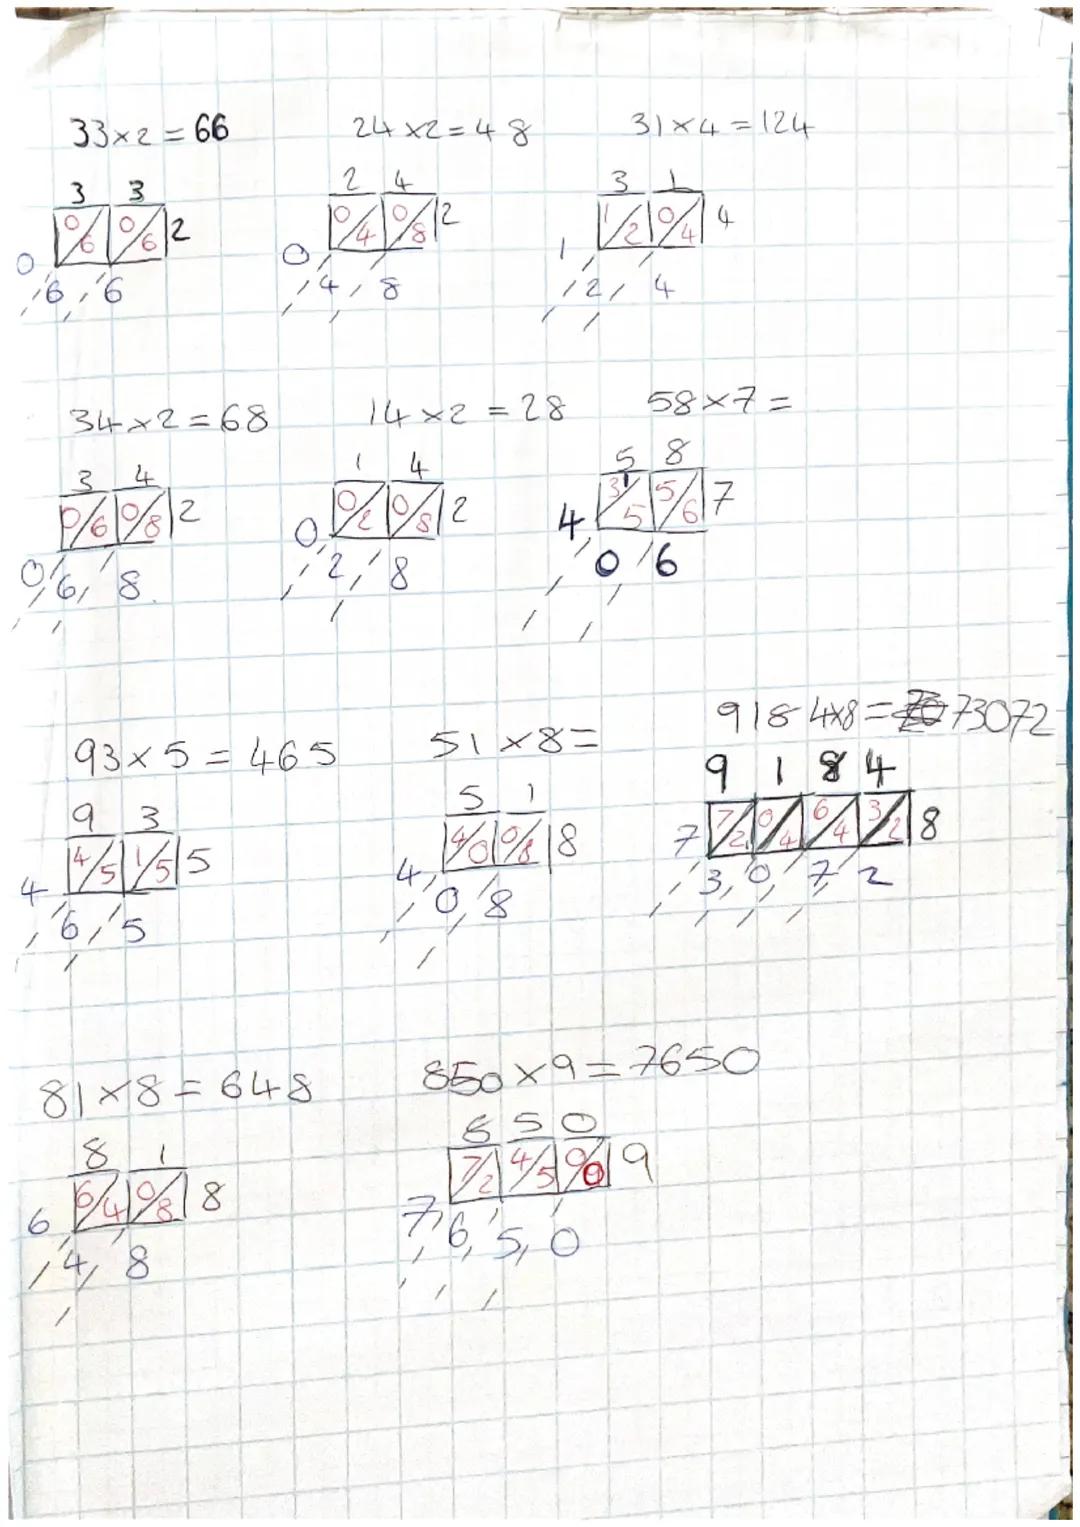 33×2=66 24×2=48 31×4=124
3 3 2 4 3 1
0/6 0/6 2 0/4 0/8 2 1/2 0/4 4
0 6 6 0 4 8 1 2 4
34×2=68 14×2=28 58×7=
3 4 1 4 5 8
0/6 0/8 2 0/2 0/8 2 3/5 5/6 7
0 6 8 0 2 8 4 0 6
93×5=465 51×8= 9184×8=73072
9 3 5 1 9 1 8 4
4/5 1/5 5 4/0 0/8 8 7/2 0/4 6/4 3/2 8
4 6 5 4 0 8 7 3 0 7 2
81×8=648 850×9=7650
8 1 8 5 0
6/4 0/8 8 7/2 4/5 0/0 9
6 4 8 7 6 5 0